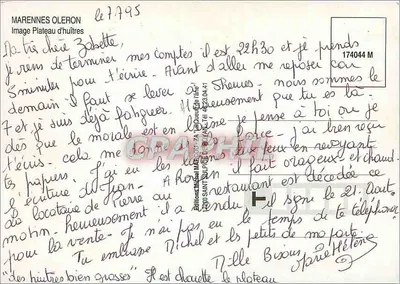 MARENNES OLERON
Image Plateau d'huîtres
le 7.7.95
174044 M
Ma très chère Zabette,
je viens de terminer mes comptes il est 22h30 et je prends
5 minutes pour t'écrire. Avant d'aller me reposer car
demain il faut se lever à 5 heures. nous sommes le
7 et je suis déjà fatiguée. Heureusement que tu es là.
dès que le moral est en baisse je pense à toi ou je
t'écris. cela me donne force. J'ai bien reçu
tes papiers. J'ai eu les en revoyant
l'écriture de Jean. A il fait orageux et chaud.
La locataire de Pierre au restaurant est décédée ce
matin. heureusement il a il signe le 21 Août
pour la vente. Je n'ai pas eu le temps de te téléphoner
Tu embrasse Michel et les petits de ma part.
Mille Bisous
Marie Hélène
"des huitres bien grasses" Il est chouette le plateau